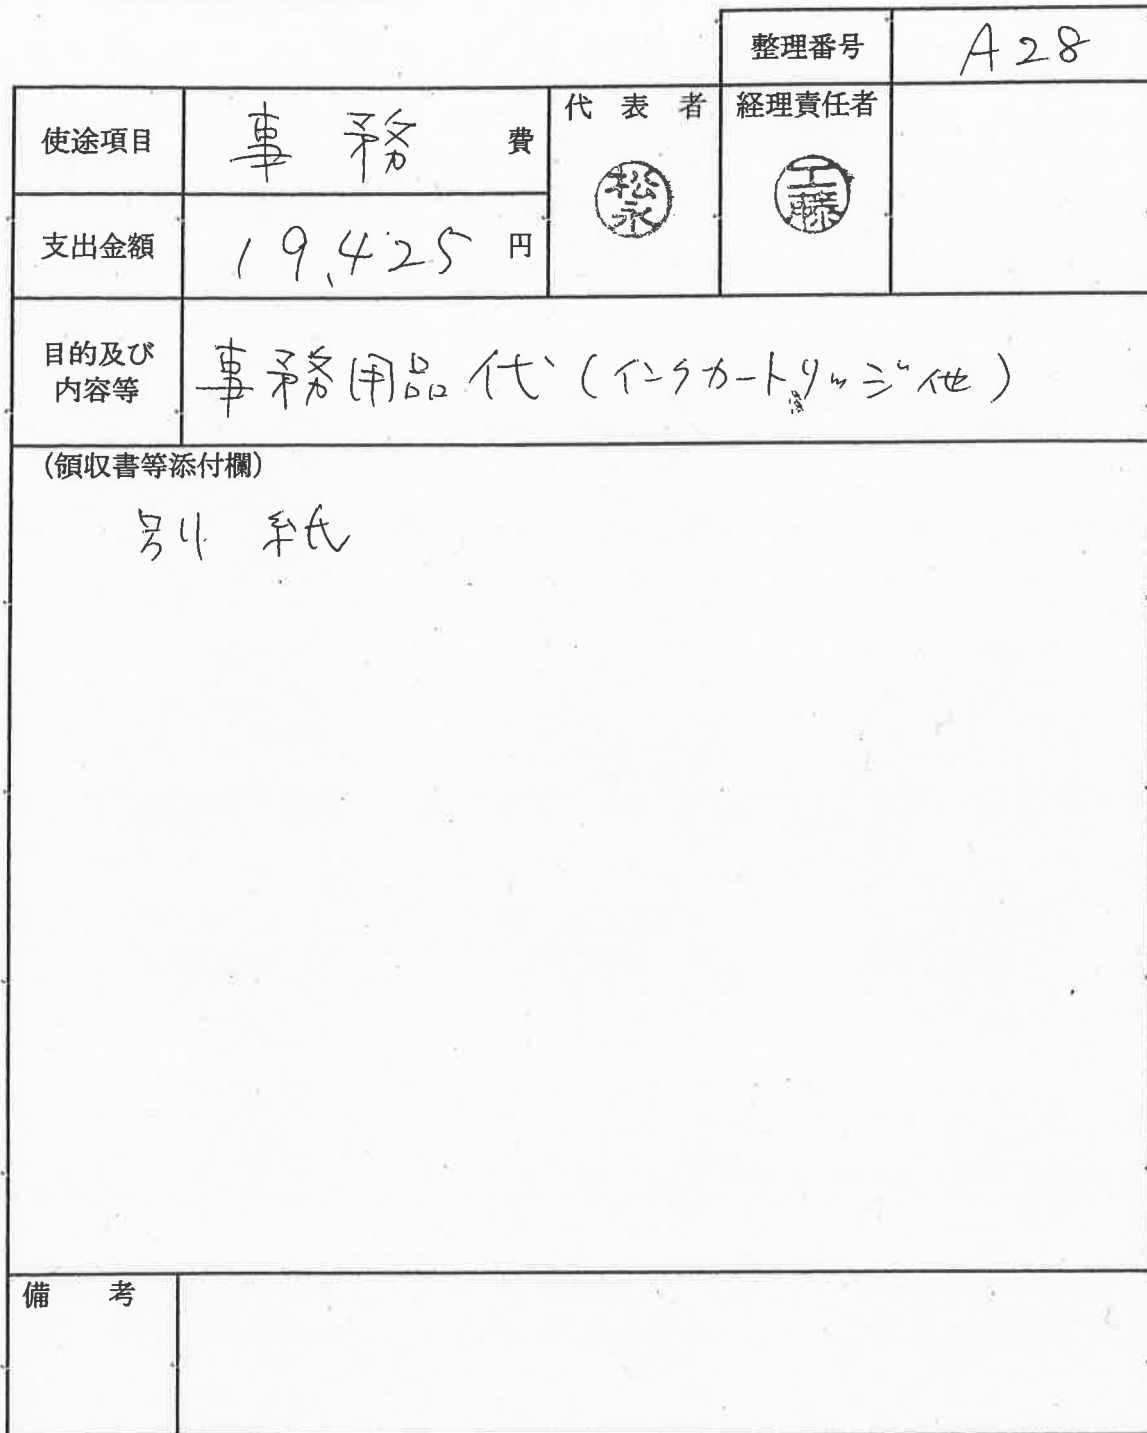 整理番号 A28
使途項目 事務 費 代表者 経理責任者
松永 工藤
支出金額 19,425 円
目的及び
内容等 事務用品代(インクカートリッジ他)
(領収書等添付欄)
別紙
備考